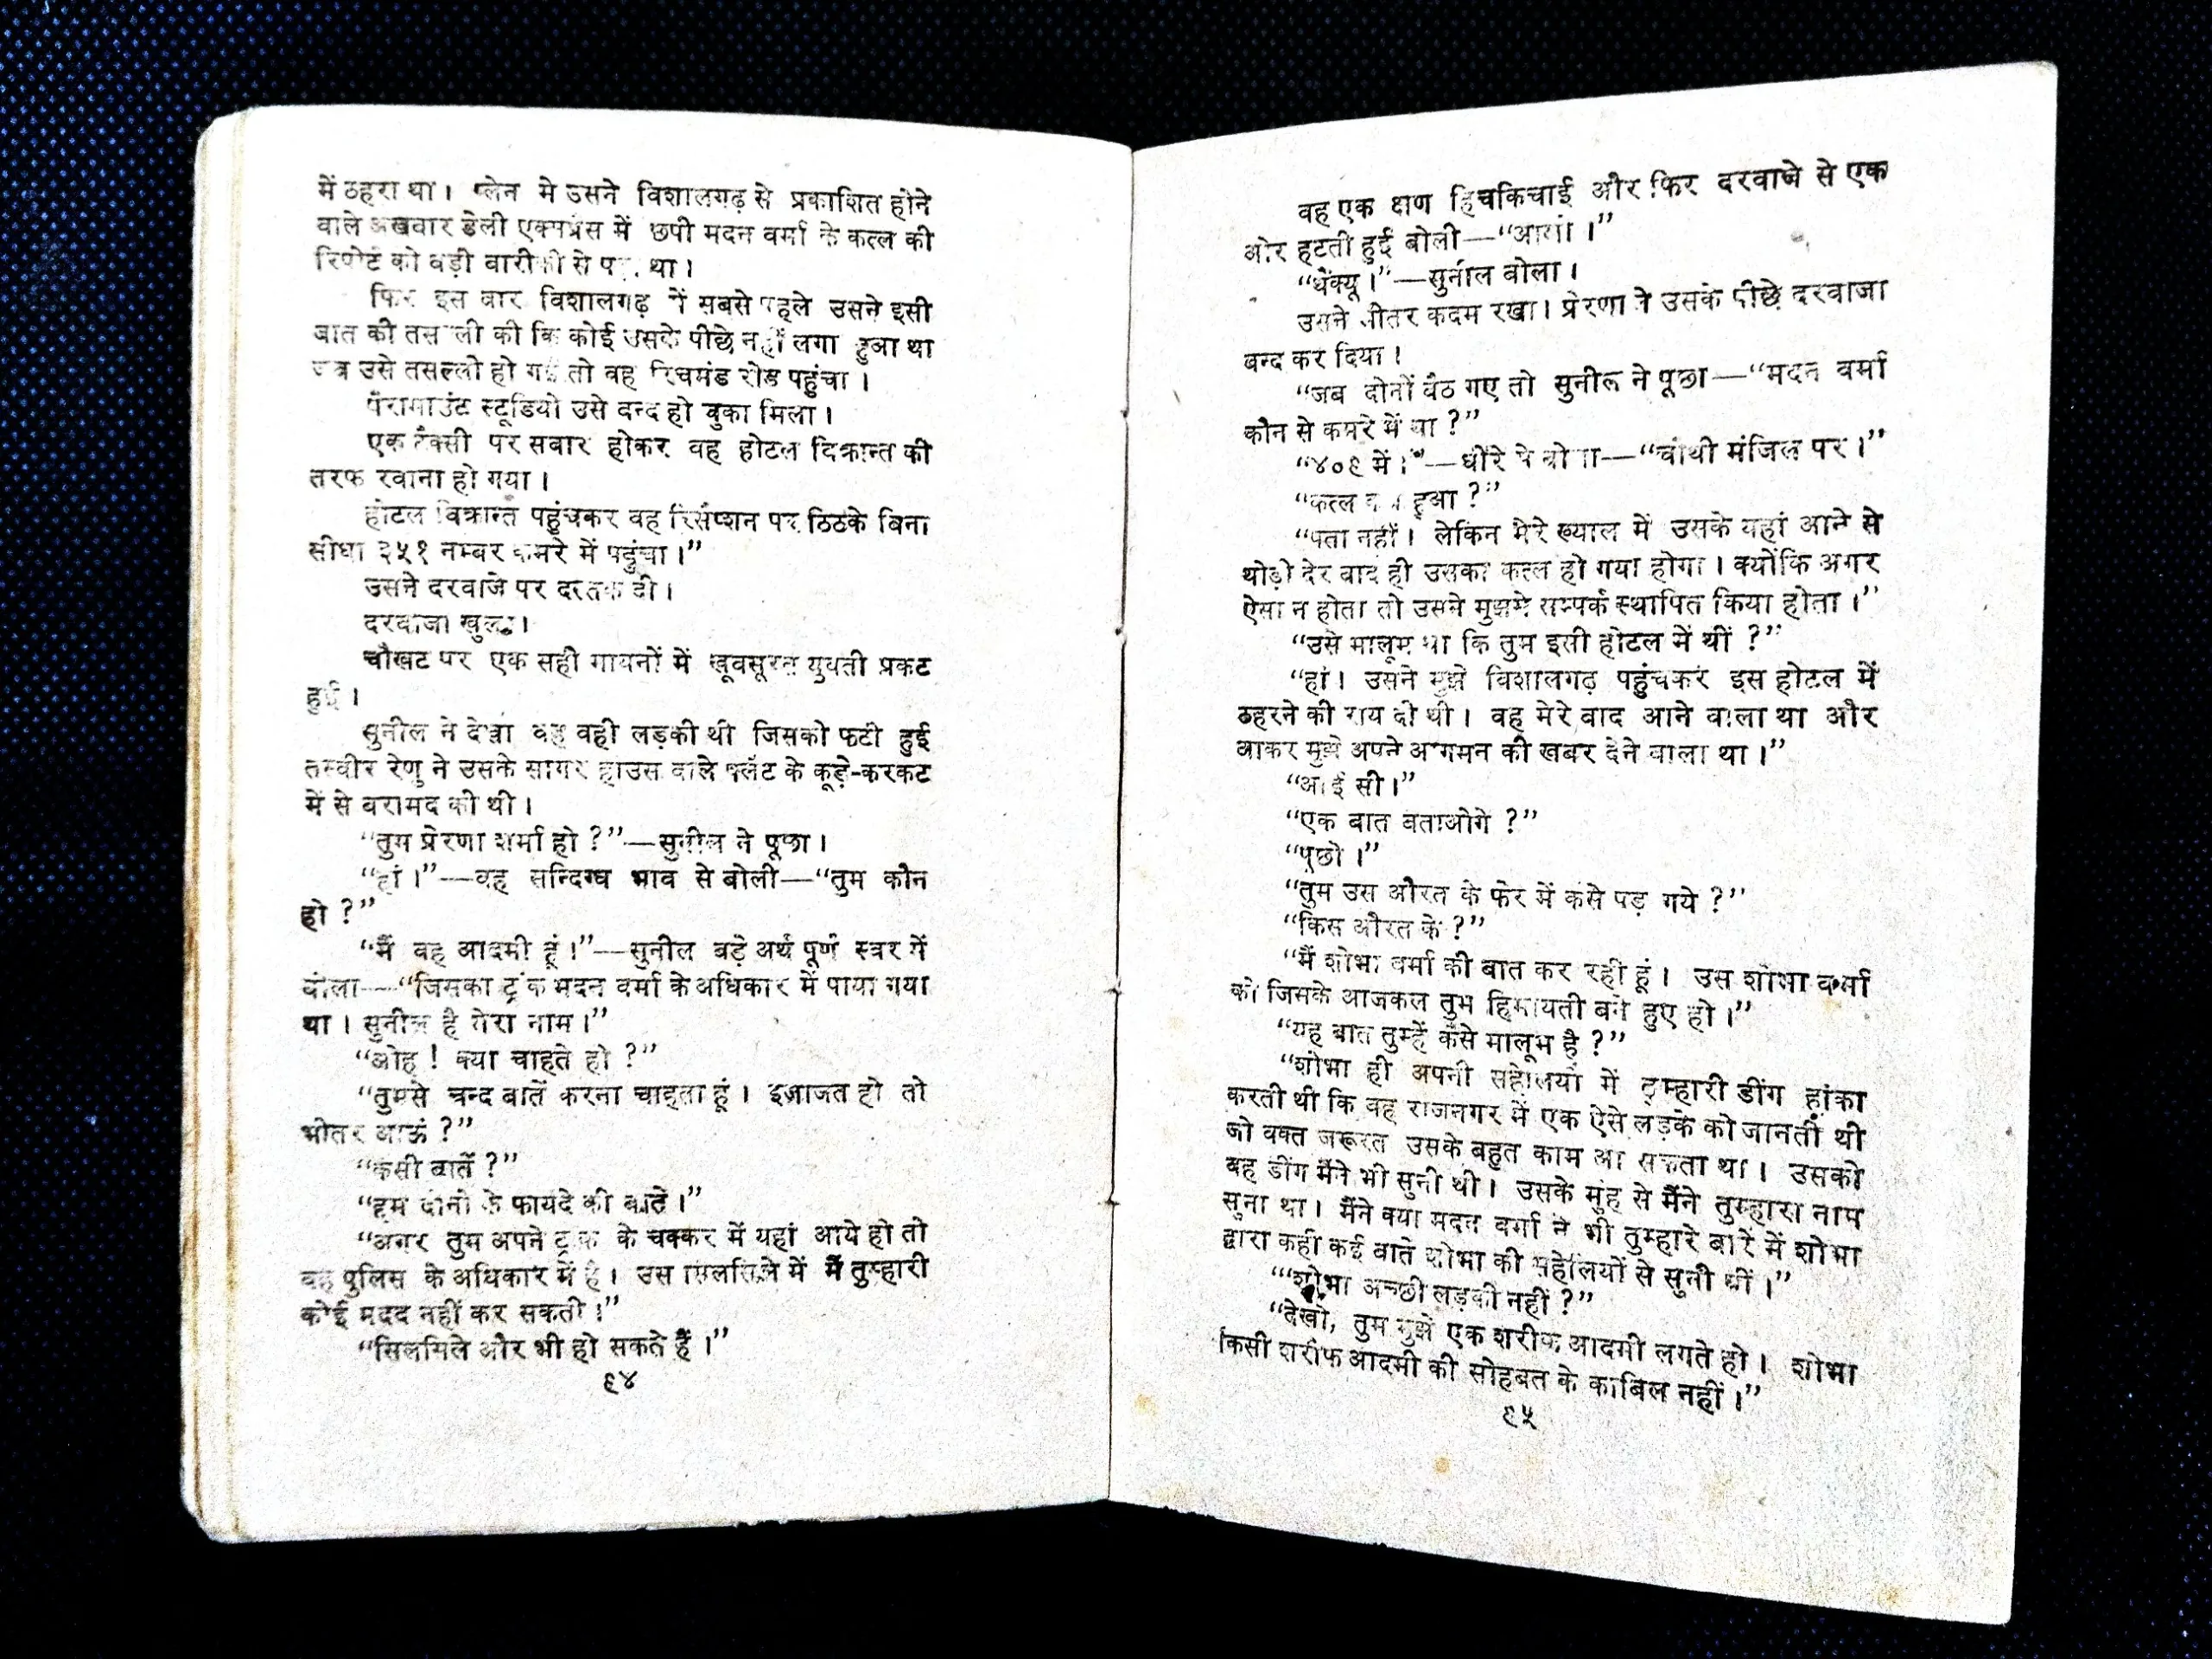 में ठहरा था। प्लेन मे उसने विशालगढ़ से प्रकाशित होने
वाले अखबार डेली एक्सप्रेस में छपी मदन वर्मा के कत्ल की
रिपोर्ट को बड़ी बारीकी से पढ़ा था।
फिर इस बार विशालगढ़ में सबसे पहले उसने इसी
बात की तसल्ली की कि कोई उसके पीछे नहीं लगा हुआ था
जब उसे तसल्ली हो गई तो वह रिचमंड रोड पहुंचा।
पैरामाउंट स्टूडियो उसे बन्द हो चुका मिला।
एक टैक्सी पर सवार होकर वह होटल विक्रान्त की
तरफ रवाना हो गया।
होटल विक्रान्त पहुंचकर वह रिसैप्शन पर ठिठके बिना
सीधा ३५१ नम्बर कमरे में पहुंचा।”
उसने दरवाजे पर दस्तक दी।
दरवाजा खुला।
चौखट पर एक सही मायनों में खूबसूरत युवती प्रकट
हुई।
सुनील ने देखा वह वही लड़की थी जिसकी फटी हुई
तस्वीर रेणु ने उसके सागर हाउस वाले फ्लैट के कूड़े-करकट
में से बरामद की थी।
“तुम प्रेरणा शर्मा हो ?”—सुनील ने पूछा।
“हां।”—वह सन्दिग्ध भाव से बोली—“तुम कौन
हो ?”
“मैं वह आदमी हूं।”—सुनील बड़े अर्थ पूर्ण स्वर में
बोला—“जिसका ट्रंक मदन वर्मा के अधिकार में पाया गया
था। सुनील है मेरा नाम।”
“ओह ! क्या चाहते हो ?”
“तुमसे चन्द बातें करना चाहता हूं। इजाजत हो तो
भीतर आऊं ?”
“कैसी बातें ?”
“हम दोनों के फायदे की बातें।”
“अगर तुम अपने ट्रंक के चक्कर में यहां आये हो तो
वह पुलिस के अधिकार में है। उस सिलसिले में मैं तुम्हारी
कोई मदद नहीं कर सकती।”
“सिलसिले और भी हो सकते हैं।”
९४
वह एक क्षण हिचकिचाई और फिर दरवाजे से एक
ओर हटती हुई बोली—“आओ।”
“थैंक्यू।”—सुनील बोला।
उसने भीतर कदम रखा। प्रेरणा ने उसके पीछे दरवाजा
बन्द कर दिया।
“जब दोनों बैठ गए तो सुनील ने पूछा—“मदन वर्मा
कौन से कमरे में था ?”
“४०९ में।”—धीरे से बोली—“चौथी मंजिल पर।”
“कत्ल कब हुआ ?”
“पता नहीं। लेकिन मेरे ख्याल में उसके यहां आने से
थोड़ी देर बाद ही उसका कत्ल हो गया होगा। क्योंकि अगर
ऐसा न होता तो उसने मुझसे सम्पर्क स्थापित किया होता।”
“उसे मालूम था कि तुम इसी होटल में थीं ?”
“हां। उसने मुझे विशालगढ़ पहुंचकर इस होटल में
ठहरने की राय दी थी। वह मेरे बाद आने वाला था और
आकर मुझे अपने आगमन की खबर देने वाला था।”
“आई सी।”
“एक बात बताओगे ?”
“पूछो।”
“तुम उस औरत के फेर में कैसे पड़ गये ?”
“किस औरत के ?”
“मैं शोभा वर्मा की बात कर रही हूं। उस शोभा वर्मा
की जिसके आजकल तुम हिमायती बने हुए हो।”
“यह बात तुम्हें कैसे मालूम है ?”
“शोभा ही अपनी सहेलियों में तुम्हारी डींग हांका
करती थी कि वह राजनगर में एक ऐसे लड़के को जानती थी
जो वक्त जरूरत उसके बहुत काम आ सकता था। उसकी
वह डींग मैंने भी सुनी थी। उसके मुंह से मैंने तुम्हारा नाम
सुना था। मैंने क्या मदन वर्मा ने भी तुम्हारे बारे में शोभा
द्वारा कही कई बातें शोभा की सहेलियों से सुनी थीं।”
“‘शोभा अच्छी लड़की नहीं ?”
“देखो, तुम मुझे एक शरीफ आदमी लगते हो। शोभा
किसी शरीफ आदमी की सोहबत के काबिल नहीं।”
९५